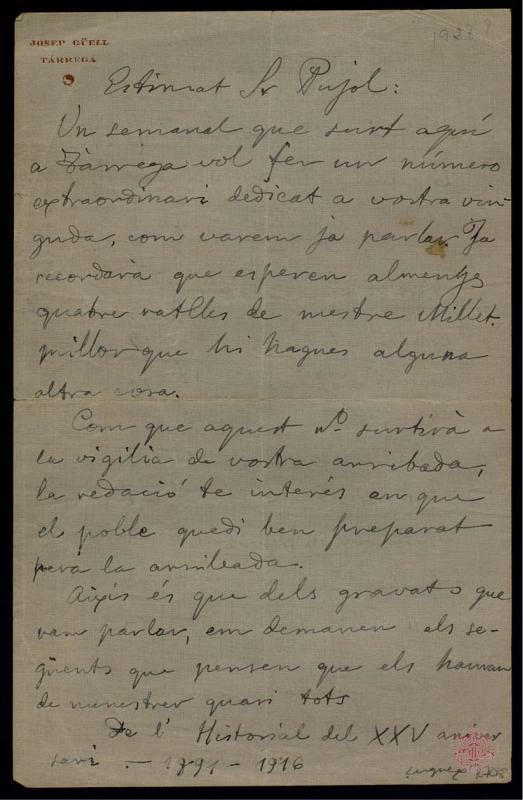 JOSEP GÜELL
TÀRREGA
1927?
Estimat Sr Pujol:
Un semanal que surt aquí
a Tàrrega vol fer un número
extraordinari dedicat a vostra vin-
guda, com varem ja parlar. Ja
recordarà que esperen almenys
quatre ratlles de mestre Millet.
millor que hi hagues alguna
altra cosa.
Com que aquest nº surtirà a
la vigilia de vostra arribada,
la redació te interés en que
el poble quedi ben preparat
pera la arribada.
Aixís és que dels gravats que
vam parlar, em demanen els se-
güents que pensen que els hauran
de menester quasi tots
De l' Historial del XXV aniver
sari. - 1891 - 1916